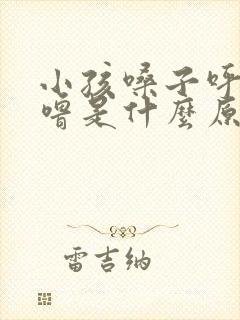 小孩嗓子呼
噜是什麼原
雷吉纳